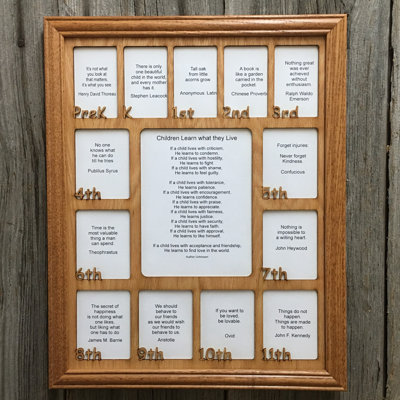 It's not
what you
look at that
matters.
It's what
you see.
Henry David Thoreau
There is only
one beautiful
child in the world,
and every mother
has it.
Stephen Leacock
Tall oak
from little
acorns grow
Anonymous: Latin
A book is
like a garden
carried in the
pocket.
Chinese Proverb
Nothing great
was ever
achieved
without
enthusiasm.
Ralph Waldo
Emerson
PreK K 1st 2nd 3rd
No one
knows what
he can do
till he tries
Publilius Syrus
4th
Children Learn what they Live
If a child lives with criticism,
He learns to condemn.
If a child lives with hostility,
He learns to fight.
If a child lives with shame,
He learns to feel guilty.
If a child lives with tolerance,
He learns patience.
If a child lives with encouragement,
He learns confidence.
If a child lives with praise,
He learns to appreciate.
If a child lives with fairness,
He learns justice.
If a child lives with security,
He learns to have faith.
If a child lives with approval,
He learns to like himself.
If a child lives with acceptance and friendship,
He learns to find love in the world.
Author Unknown
Forget injuries.
Never forget
Kindness.
Confucious
5th
Time is the
most valuable
thing a man
can spend.
Theophrastus
6th
Nothing is
impossible to
a willing heart.
John Heywood
7th
The secret of
happiness
is not doing what
one likes,
but liking what
one has to do
James M. Barrie
We should
behave to
our friends
as we would wish
our friends to
behave to us.
Aristotle
If you want to
be loved,
be lovable.
Ovid
Things do not
happen
Things are
made to
happen.
John F. Kennedy
8th 9th 10th 11th